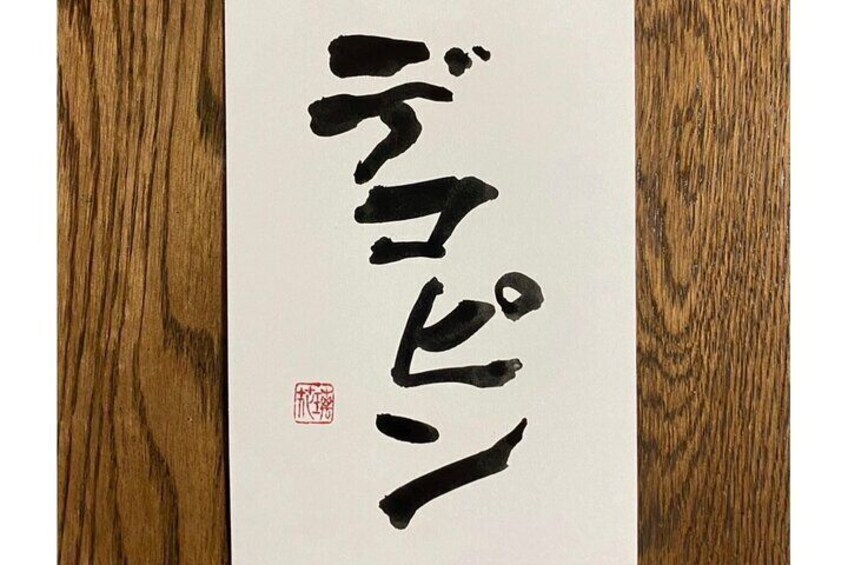 デコピン